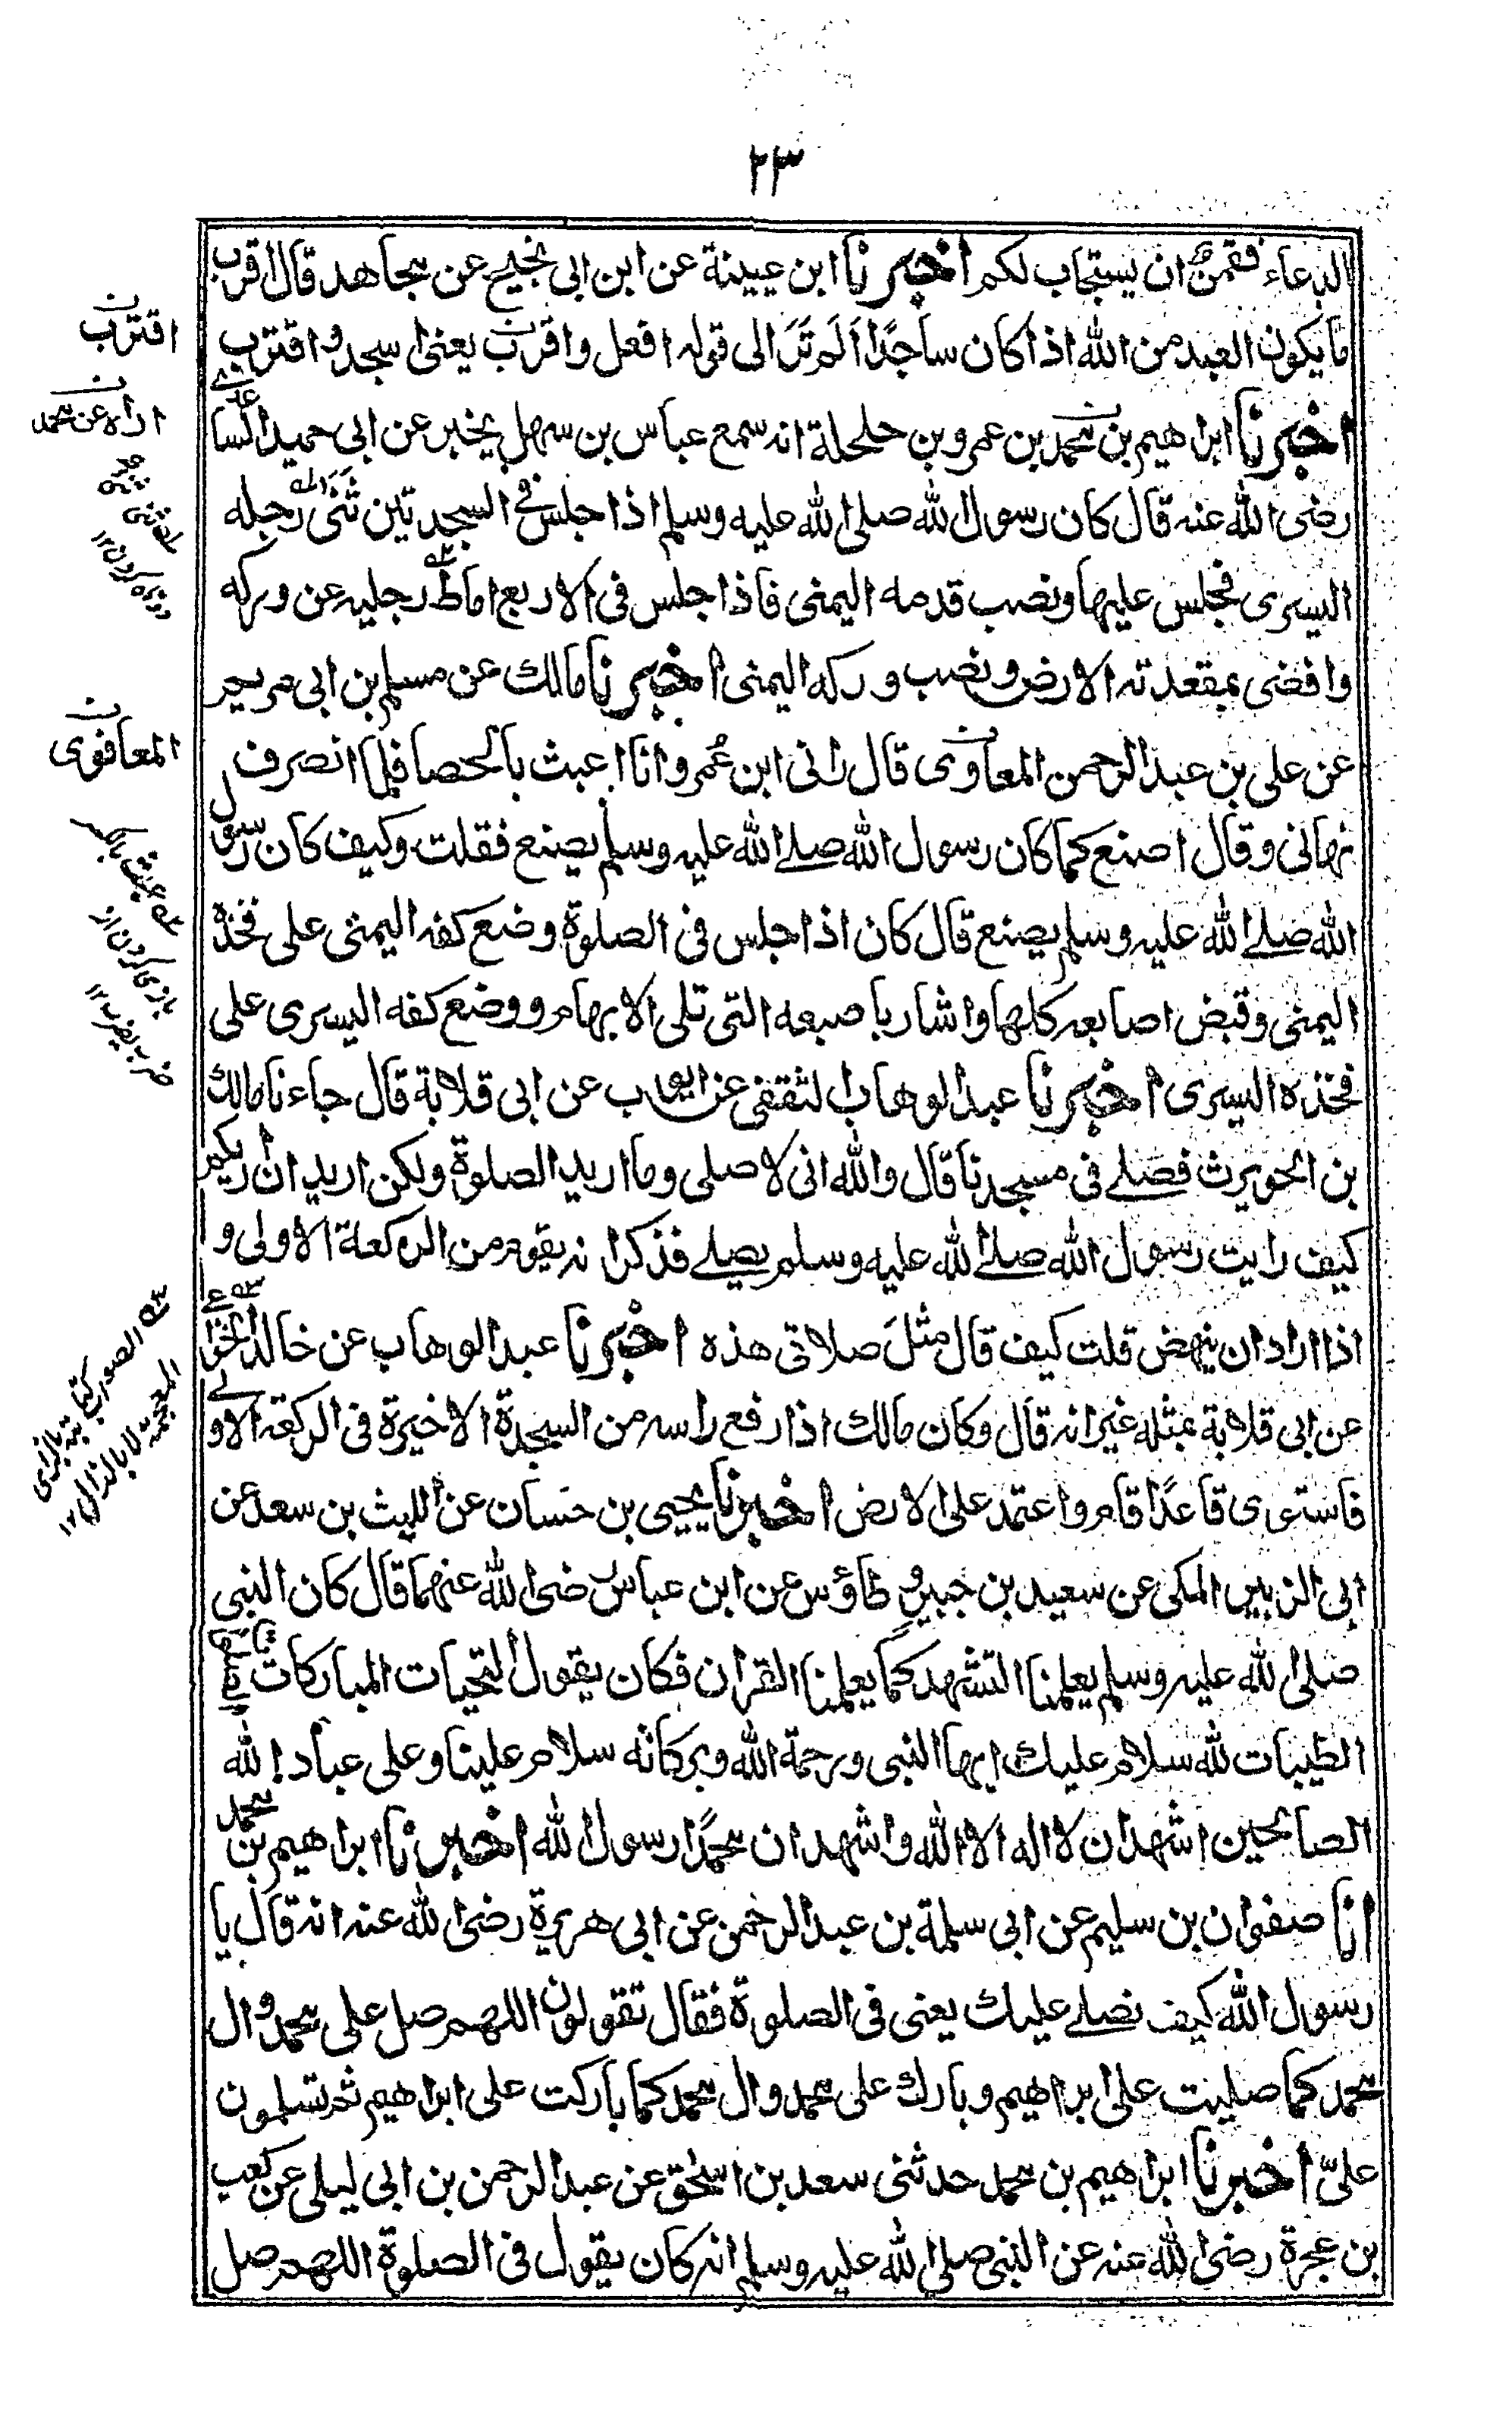 ٢٣
الدعاء فقمن ان يستجاب لكم اخبرنا ابن عيينة عن ابن ابى نجيح عن مجاهد قال اقرب
ما يكون العبد من الله اذا كان ساجدًا اَلَم تَرَ الى قوله افعل واقرب يعنى اسجد واقترب
اخبرنا ابراهيم بن محمد بن عمرو بن حلحلة انه سمع عباس بن سهل يخبر عن ابى حميد الساعدى
رضى الله عنه قال كان رسول الله صلى الله عليه وسلم اذا جلس فى السجدتين ثَنَى رجله
اليسرى فجلس عليها ونصب قدمه اليمنى فاذا جلس فى الاربع اماط رجليه عن وركه
وافضى بمقعدته الارض ونصب وركه اليمنى اخبرنا مالك عن مسلم بن ابى مريم
عن على بن عبد الرحمن المعاوى قال رانى ابن عُمر وانا اعبث بالحصا فلما انصرف
نهانى وقال اصنع كما كان رسول الله صلے الله عليه وسلم يصنع فقلت وكيف كان رسول
الله صلے الله عليه وسلم يصنع قال كان اذا جلس فى الصلوة وضع كفه اليمنى على فخذه
اليمنى وقبض اصابعه كلها واشار باصبعه التى تلى الابهام ووضع كفه اليسرى على
فخذه اليسرى اخبرنا عبد الوهاب الثقفى عن ايوب عن ابى قلابة قال جاءنا مالك
بن الحويرث فصلے فى مسجدنا قال والله انى لاصلى وما اريد الصلوة ولكن اريد ان اريكم
كيف رايت رسول الله صلے الله عليه وسلم يصلے فذكر انه يقوم من الركعة الاولى و
اذا اراد ان ينهض قلت كيف قال مثلَ صلاتى هذه اخبرنا عبد الوهاب عن خالد الحذاء
عن ابى قلابة بمثله غير انه قال وكان مالك اذا رفع راسه من السجدة الاخيرة فى الركعة الاولے
فاستوى قاعدًا قام واعتمد على الارض اخبرنا يحيى بن حسان عن الليث بن سعد عن
ابى الزبير المكى عن سعيد بن جبير و طاؤس عن ابن عباس رضى الله عنهما قال كان النبى
صلى الله عليه وسلم يعلمنا التشهد كما يعلمنا القران فكان يقول التحيات المباركات الصلوات
الطيبات لله سلام عليك ايها النبى ورحمة الله وبركاته سلام علينا وعلى عباد الله
الصالحين اشهد ان لا اله الا الله واشهد ان محمدًا رسول الله اخبرنا ابراهيم بن محمد
انا صفوان بن سليم عن ابى سلمة بن عبد الرحمن عن ابى هريرة رضى الله عنه انه قال يا
رسول الله كيف نصلے عليك يعنى فى الصلوة فقال تقولون اللهم صل على محمد وال
محمد كما صليت على ابراهيم وبارك على محمد وال محمد كما باركت على ابراهيم ثم تسلمون
علىّ اخبرنا ابراهيم بن محمد حدثنى سعد بن اسحٰق عن عبد الرحمن بن ابى ليلى عن كعب
بن عجرة رضى الله عنه عن النبى صلى الله عليه وسلم انه كان يقول فى الصلوة اللهم صل
اقترب
اراه عن محمد
المعافوى